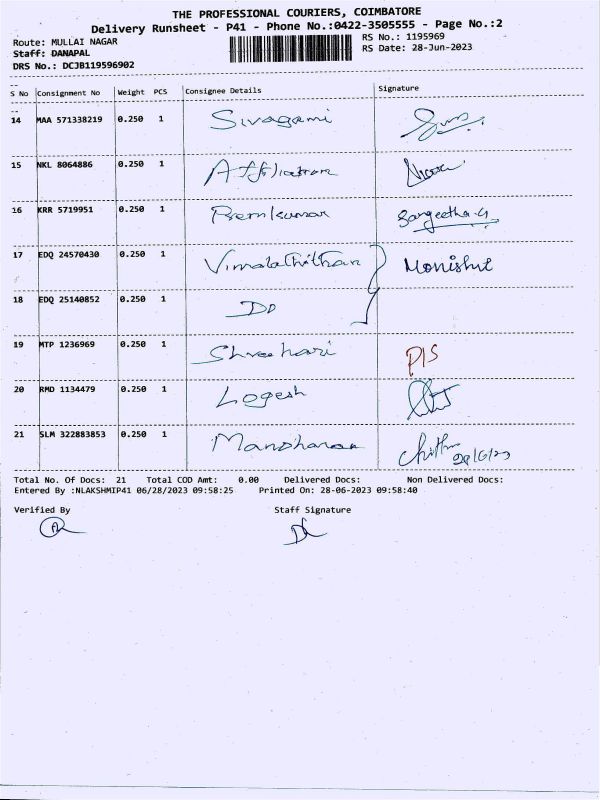 THE PROFESSIONAL COURIERS, COIMBATORE
Delivery Runsheet - P41 - Phone No.:0422-3505555 - Page No.:2
Route: MULLAI NAGAR RS No.: 1195969
Staff: DANAPAL RS Date: 28-Jun-2023
DRS No.: DCJB119596902
S No Consignment No Weight PCS Consignee Details Signature
14 MAA 571338219 0.250 1 Sivagami
15 NKL 8064886 0.250 1
16 KRR 5719951 0.250 1 Premkumar Sangeetha.G
17 EDQ 24570430 0.250 1 Vimalathithan Monishe
18 EDQ 25140852 0.250 1 DD
19 MTP 1236969 0.250 1 Shreehari P/S
20 RMD 1134479 0.250 1 Logesh
21 SLM 322883853 0.250 1 Manoharan Chithra
28/6/23
Total No. Of Docs: 21 Total COD Amt: 0.00 Delivered Docs: Non Delivered Docs:
Entered By :NLAKSHMIP41 06/28/2023 09:58:25 Printed On: 28-06-2023 09:58:40
Verified By Staff Signature